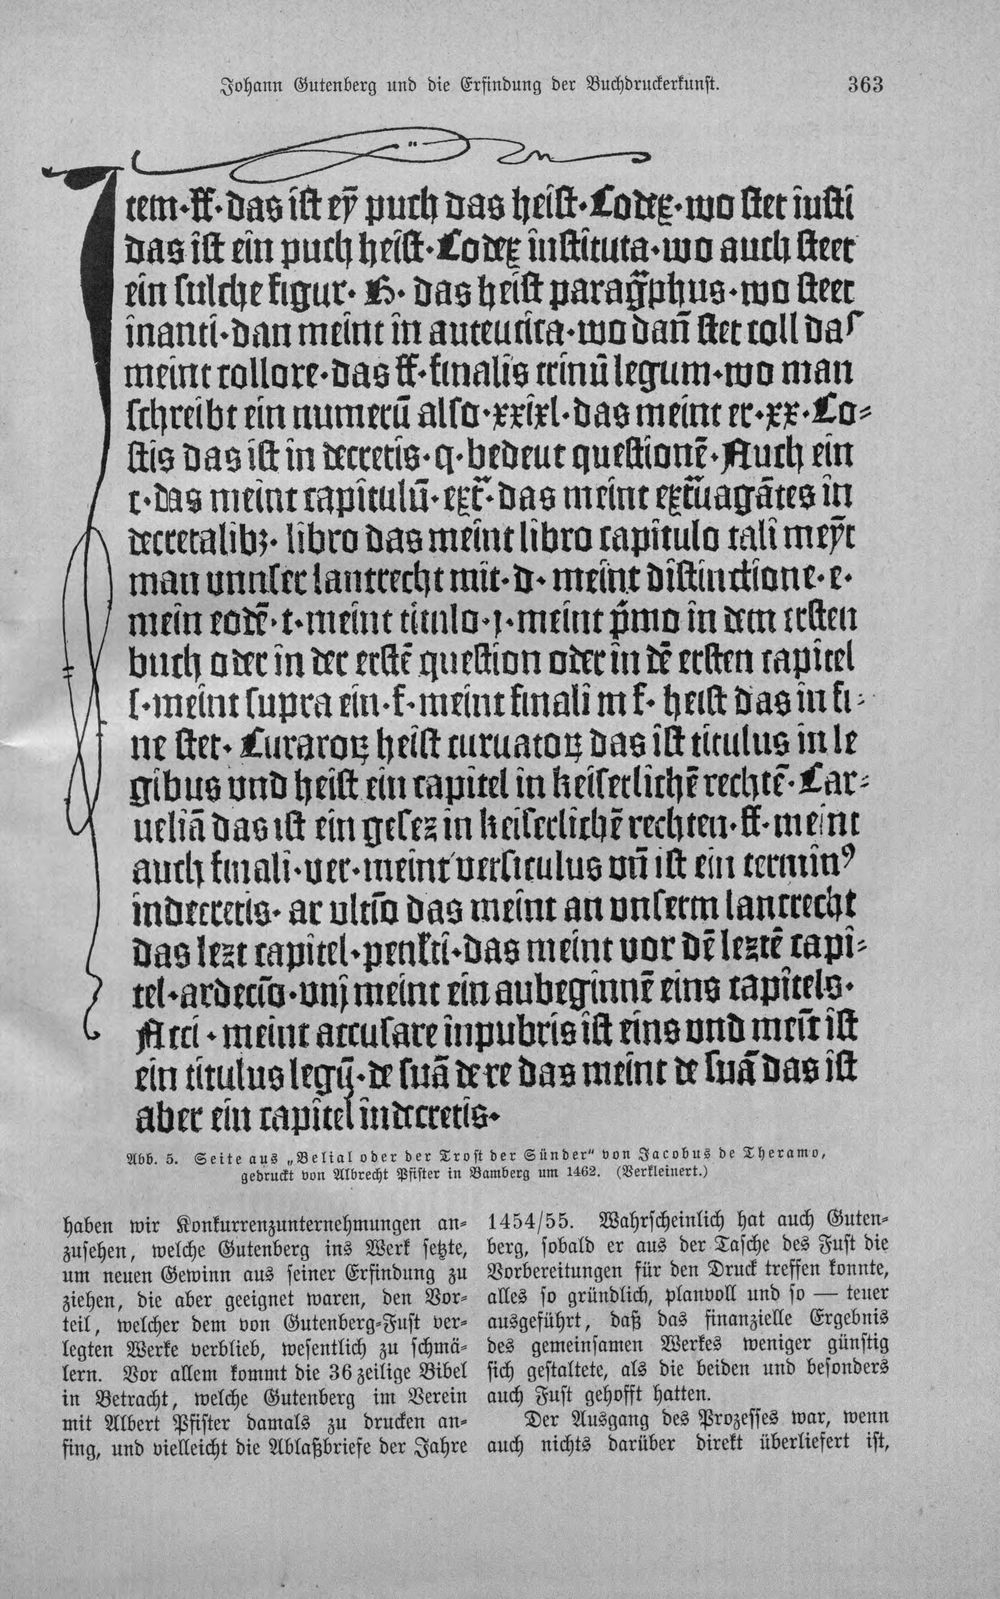 Johann Gutenberg und die Erfindung der Buchdruckerkunst. 363
Item·ff·das ist eÿ puch das heist·Codex·wo stet iusti
das ist ein puch heist·Codex instituta·wo auch steet
ein sulche figur· das heist paragͬphus·wo steet
inanti·dan meint in autentica·wo dañ stet coll das
meint collore·das ff·finalis trinū legum·wo man
schreibt ein numerū also·xxixl·das meint er·xx·Co⸗
stis das ist in decretis·q·bedeut questionē·Auch ein
c·das meint capitulū·ext᷑·das meint ext᷑uagātes in
decretalibꝫ·libro das meint libro capitulo tali meÿt
man unnser lantrecht mit·d·meint distinctione·e·
mein eodē·t·meint titulo·j·meint p̄mo in dem ersten
buch oder in der erstē question oder in dē ersten capitel
s·meint supra ein·f·meint finali in f·heist das in fi⸗
ne stet·Curatoꝝ heist curuatoꝝ das ist titulus in le
gibus und heist ein capitel in keiserlichē rechtē·Car⸗
ueliā das ist ein gesez in keiserlichē rechten·ff·meint
auch finali·ver·meint versiculus uñ ist ein terminꝰ
indecretis·ar ultīo das meint an unserm lantrecht
das lezt capitel·penlti·das meint vor dē leztē capi⸗
tel·ardecīo·vnj meint ein aubeginnē eins capitels·
Acci·meint accusare inpubris ist eins und meīt ist
ein titulus legū·de suā dere das meint de suā das ist
aber ein capitel indecretis·
Abb. 5. Seite aus „Belial oder der Trost der Sünder“ von Jacobus de Theramo,
gedruckt von Albrecht Pfister in Bamberg um 1462. (Verkleinert.)
haben wir Konkurrenzunternehmungen an⸗
zusehen, welche Gutenberg ins Werk setzte,
um neuen Gewinn aus seiner Erfindung zu
ziehen, die aber geeignet waren, den Vor⸗
teil, welcher dem von Gutenberg⸗Fust ver⸗
legten Werke verblieb, wesentlich zu schmä⸗
lern. Vor allem kommt die 36 zeilige Bibel
in Betracht, welche Gutenberg im Verein
mit Albert Pfister damals zu drucken an⸗
fing, und vielleicht die Ablaßbriefe der Jahre
1454/55. Wahrscheinlich hat auch Guten⸗
berg, sobald er aus der Tasche des Fust die
Vorbereitungen für den Druck treffen konnte,
alles so gründlich, planvoll und so — teuer
ausgeführt, daß das finanzielle Ergebnis
des gemeinsamen Werkes weniger günstig
sich gestaltete, als die beiden und besonders
auch Fust gehofft hatten.
Der Ausgang des Prozesses war, wenn
auch nichts darüber direkt überliefert ist,